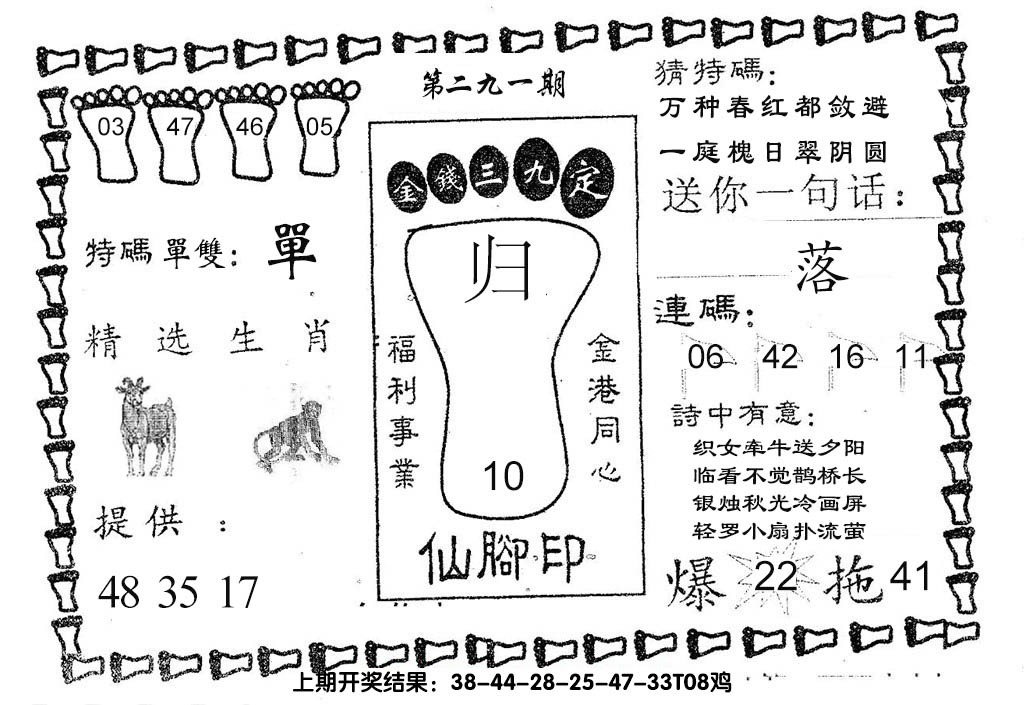 第二九一期
03 47 46 05
特碼單雙：單
精选生肖
提供：
48 35 17
金錢三九定
归
福利事業
金港同心
10
仙腳印
猜特碼：
万种春红都敛避
一庭槐日翠阴圆
送你一句话：
落
連碼：
06 42 16 11
詩中有意：
织女牵牛送夕阳
临看不觉鹊桥长
银烛秋光冷画屏
轻罗小扇扑流萤
爆 22 拖 41
上期开奖结果：38-44-28-25-47-33T08鸡